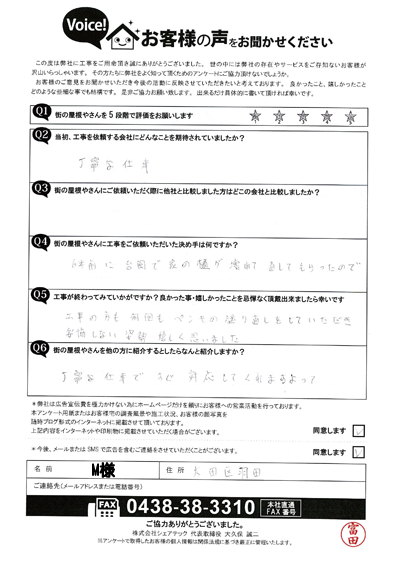 Voice!
お客様の声をお聞かせください
この度は弊社に工事をご用命頂き誠にありがとうございました。 世の中には弊社の存在やサービスをご存知ないお客様が
沢山いらっしゃいます。その方たちに弊社をよく知って頂くためのアンケートにご協力頂けないでしょうか。
お客様のご意見をお聞かせいただき今後の活動に反映させていただきたいと考えております。 良かったこと、嬉しかったこと
どのような些細な事でも結構です。 是非ご協力お願い致します。 出来るだけ具体的に書いて頂ければ幸いです。
Q1 街の屋根やさんを5段階で評価をお願いします
Q2 当初、工事を依頼する会社にどんなことを期待されていましたか?
丁寧な仕事
Q3 街の屋根やさんにご依頼いただく際に他社と比較しました方はどこの会社と比較しましたか?
Q4 街の屋根やさんに工事をご依頼いただいた決め手は何ですか?
以前に台風で家の が壊れて直してもらったので
Q5 工事が終わってみていかがですか?良かった事・嬉しかったことを忌憚なく頂戴出来ましたら幸いです
工事のうち 何回もペンキの塗り直しをしていただき
妥協しない姿勢 嬉しく思いました
Q6 街の屋根やさんを他の方に紹介するとしたらなんと紹介しますか?
丁寧な仕事で 対応してくれますよって
*弊社は広告宣伝費を極力かけない為にホームページだけを頼りにお客様への営業活動を行っております。
本アンケート用紙またはお客様宅の調査風景や施工状況、お客様の顔写真を
随時ブログ形式のインターネットに掲載させて頂いております。
上記内容をインターネットや印刷物に掲載させていただく場合がございます。 同意します
*今後、メールまたはSMSで広告を含むご連絡をさせていただくことがございます。 同意します
名前 M様 住所 大田区
ご連絡先(メールアドレスまたは電話番号)
FAX 0438-38-3310 本社直通 FAX番号
ご協力ありがとうございました。
株式会社シェアテック 代表取締役 大久保 誠二
※アンケートで取得したお客様の個人情報は関係法規に基づき厳正に管理いたします。
富田